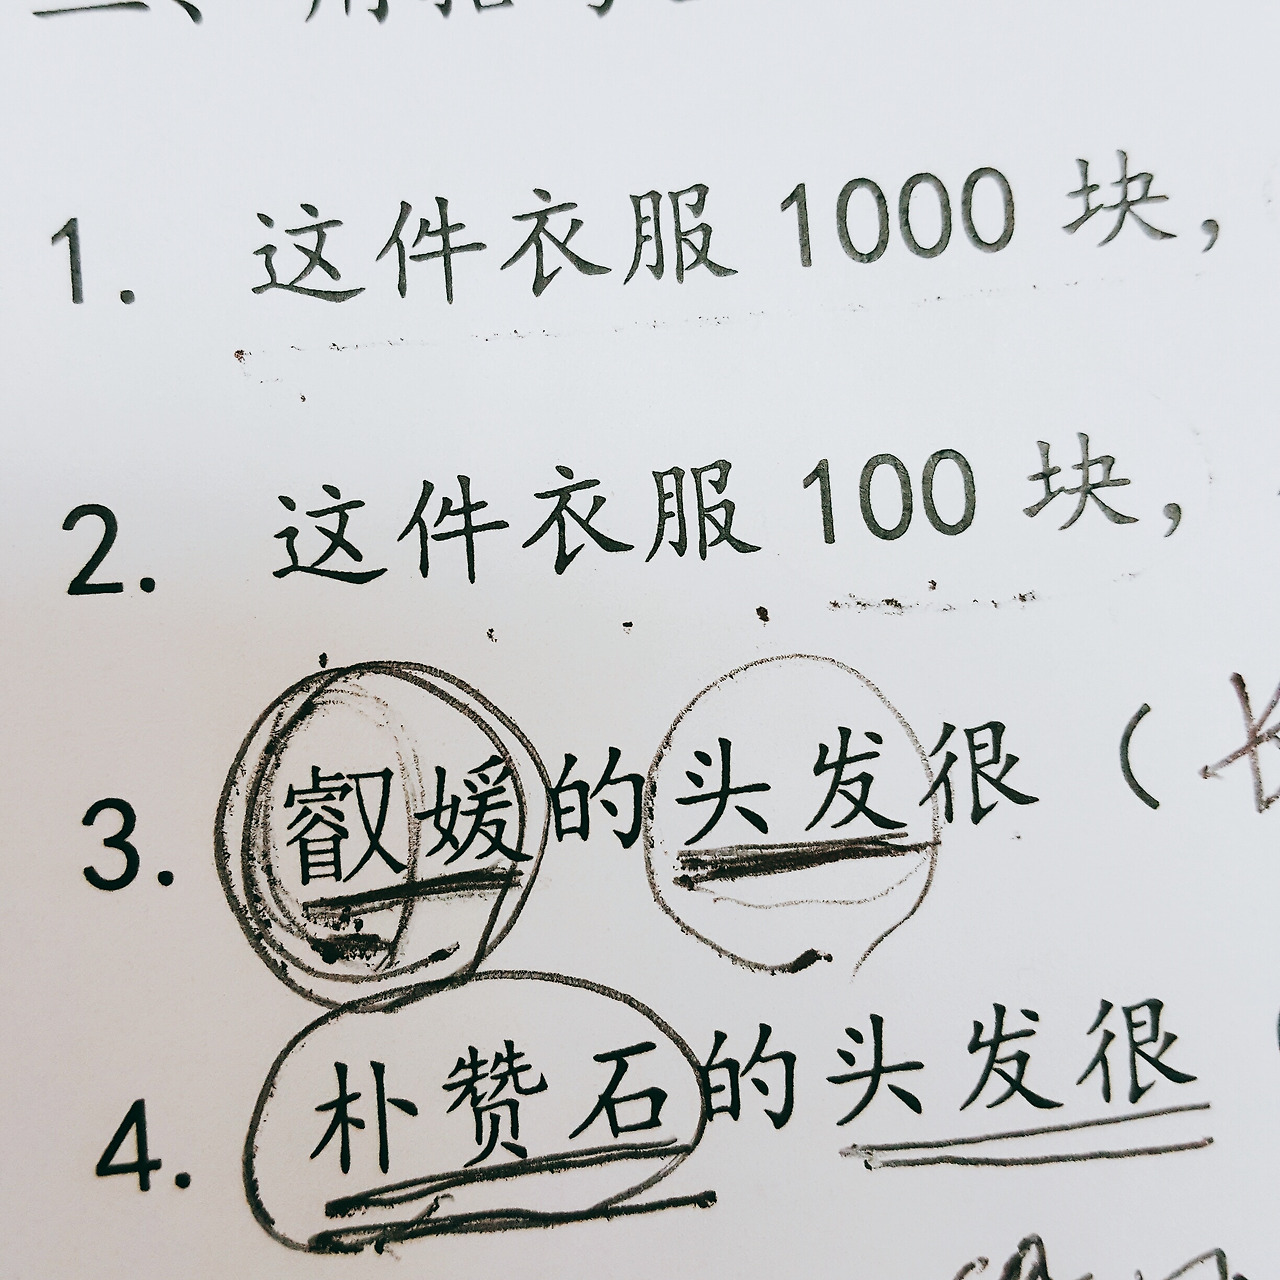 1. 这件衣服 1000 块，
2. 这件衣服 100 块，
3. 叡媛的头发很（
4. 朴赞石的头发很